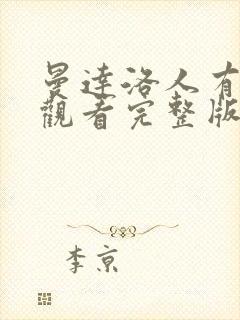 曼達洛人有
觀看完整版
李京